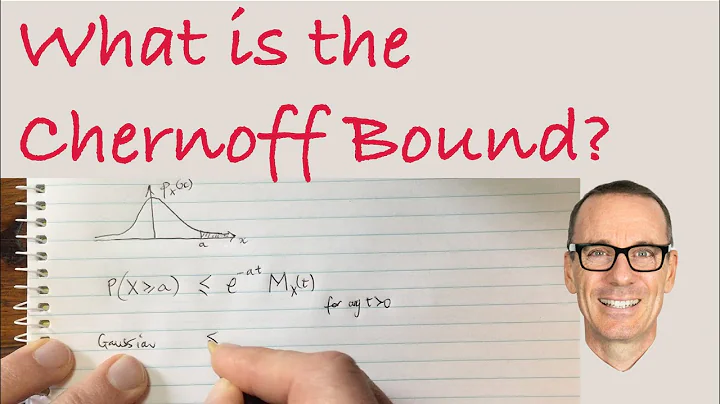 What is the
Chernoff Bound?
pₓ(x)
a
x
P(X≥a) ≤ e^{-at} Mₓ(t)
for any t>0
Gaussian ≤